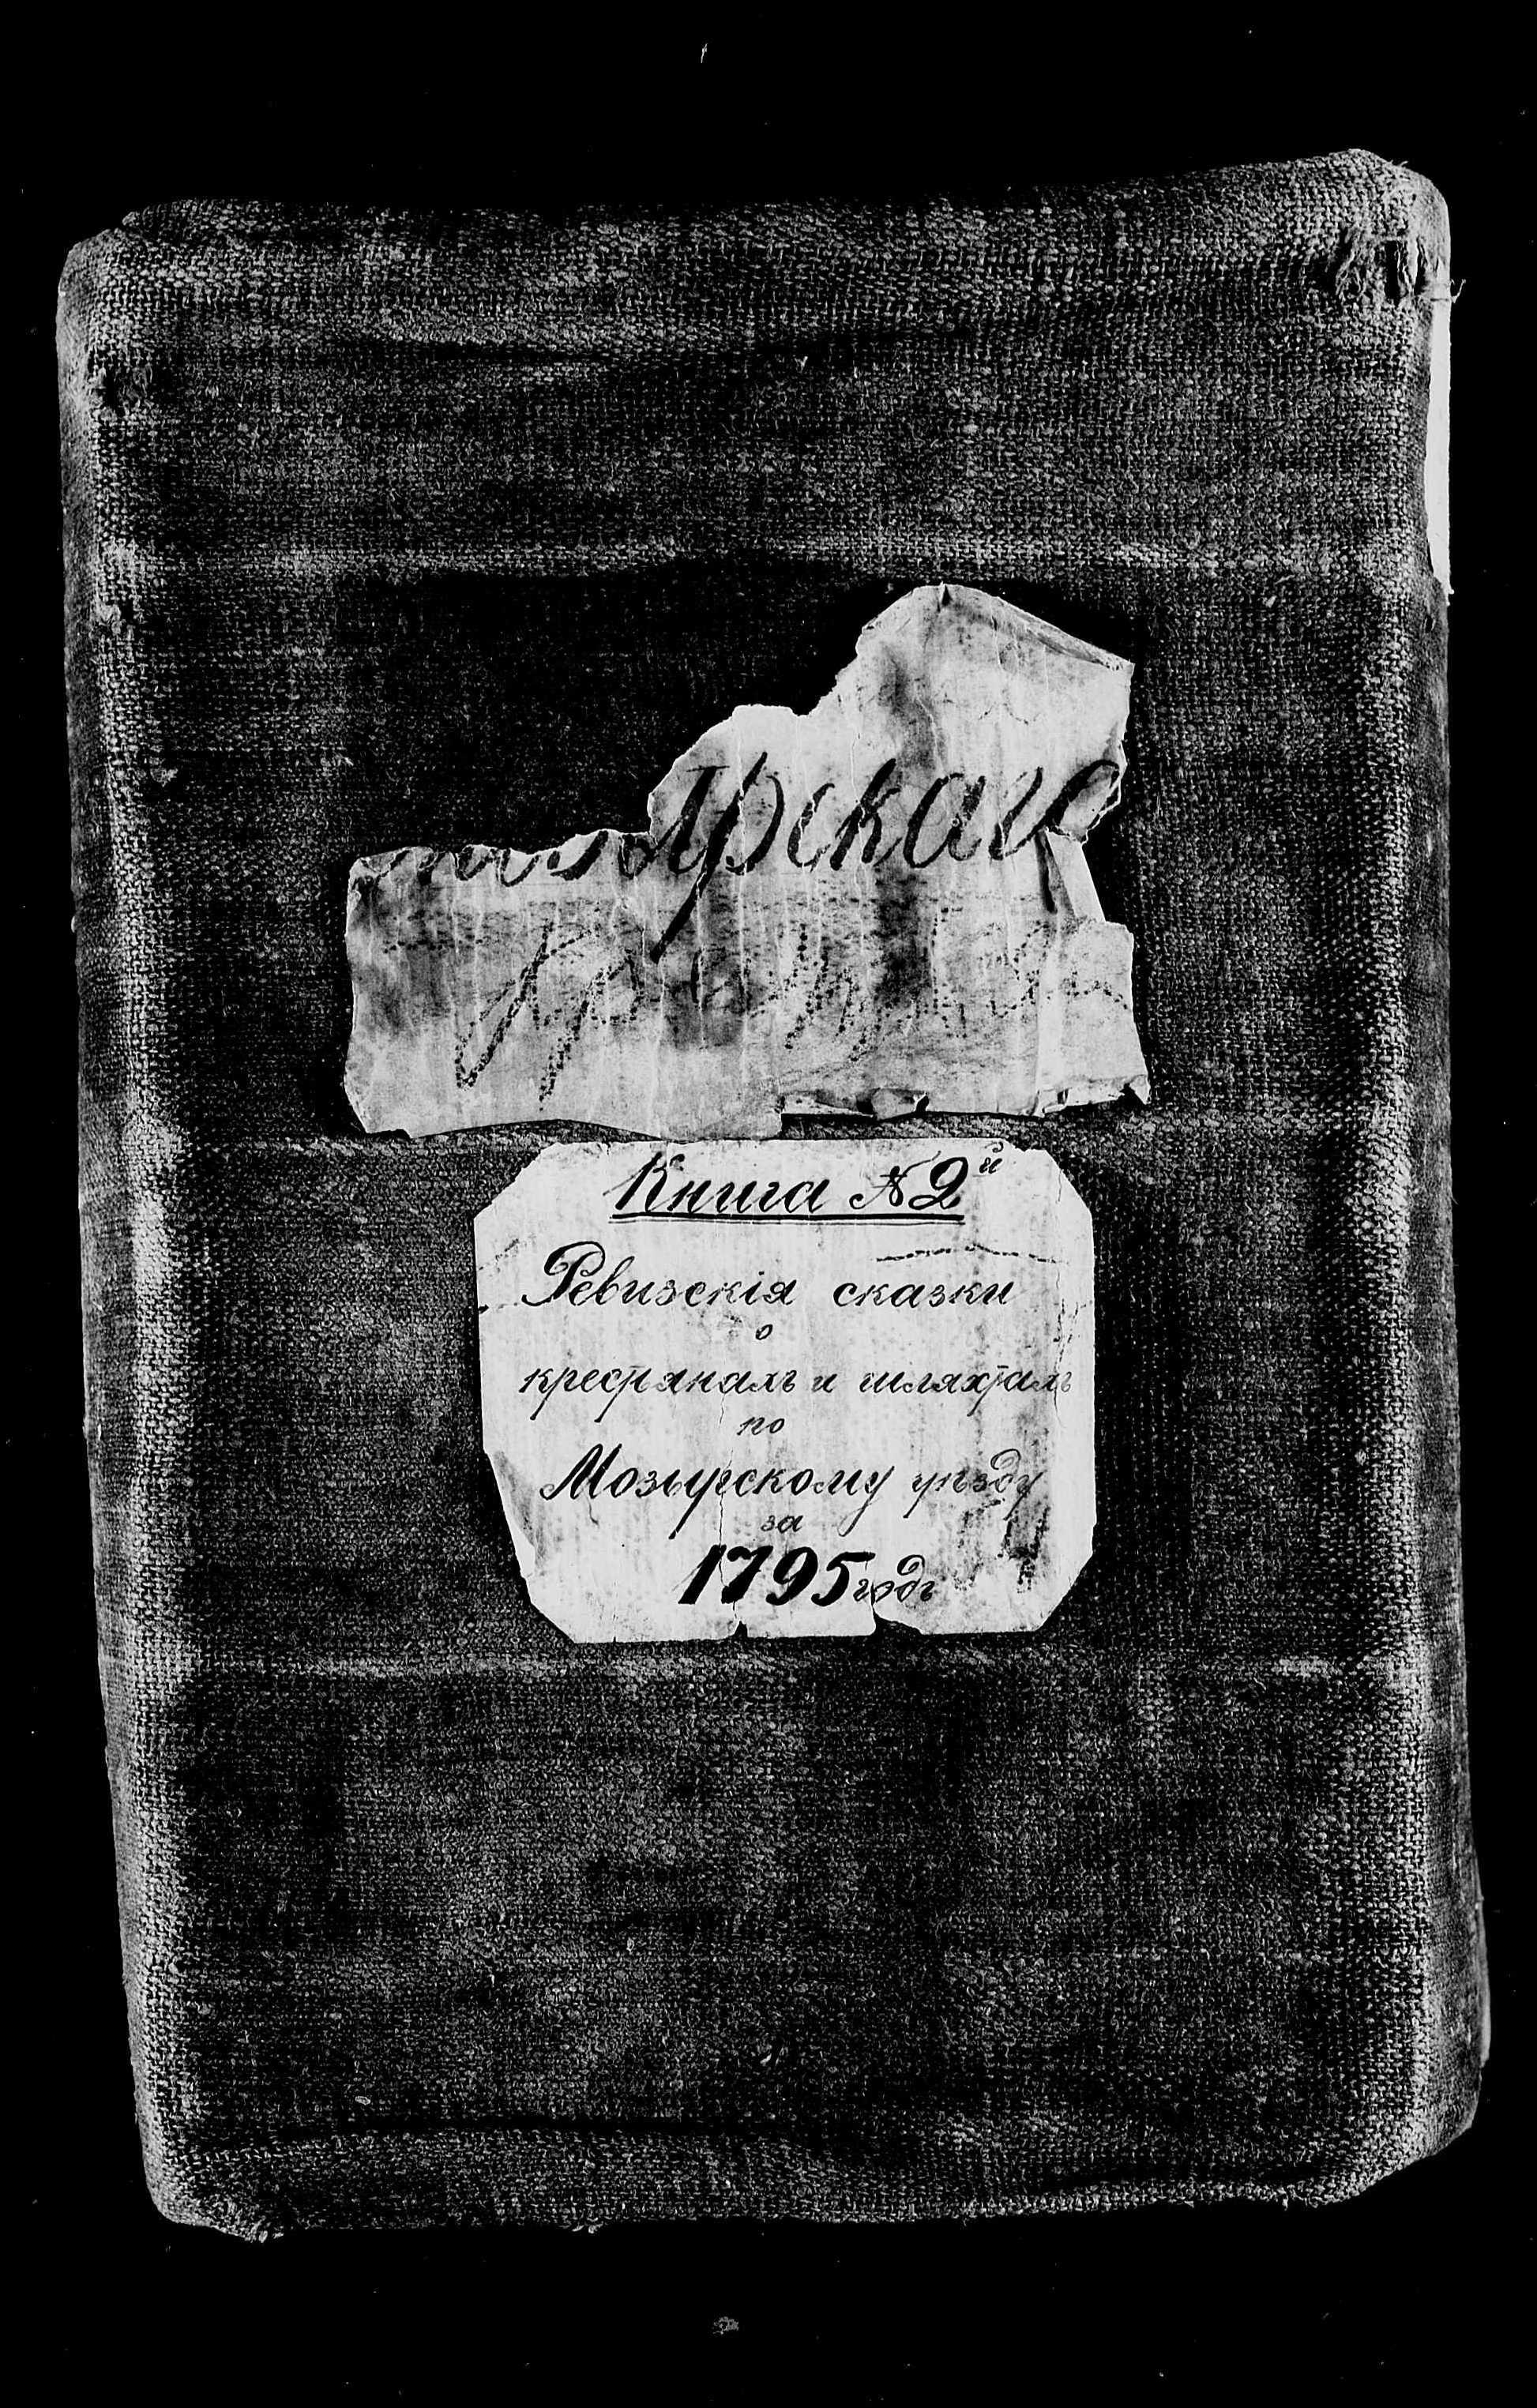 Книга N 2й
Ревизскія сказки
о
крестьянахъ и шляхтахъ
по
Мозырскому уѣзду
за
1795 годъ